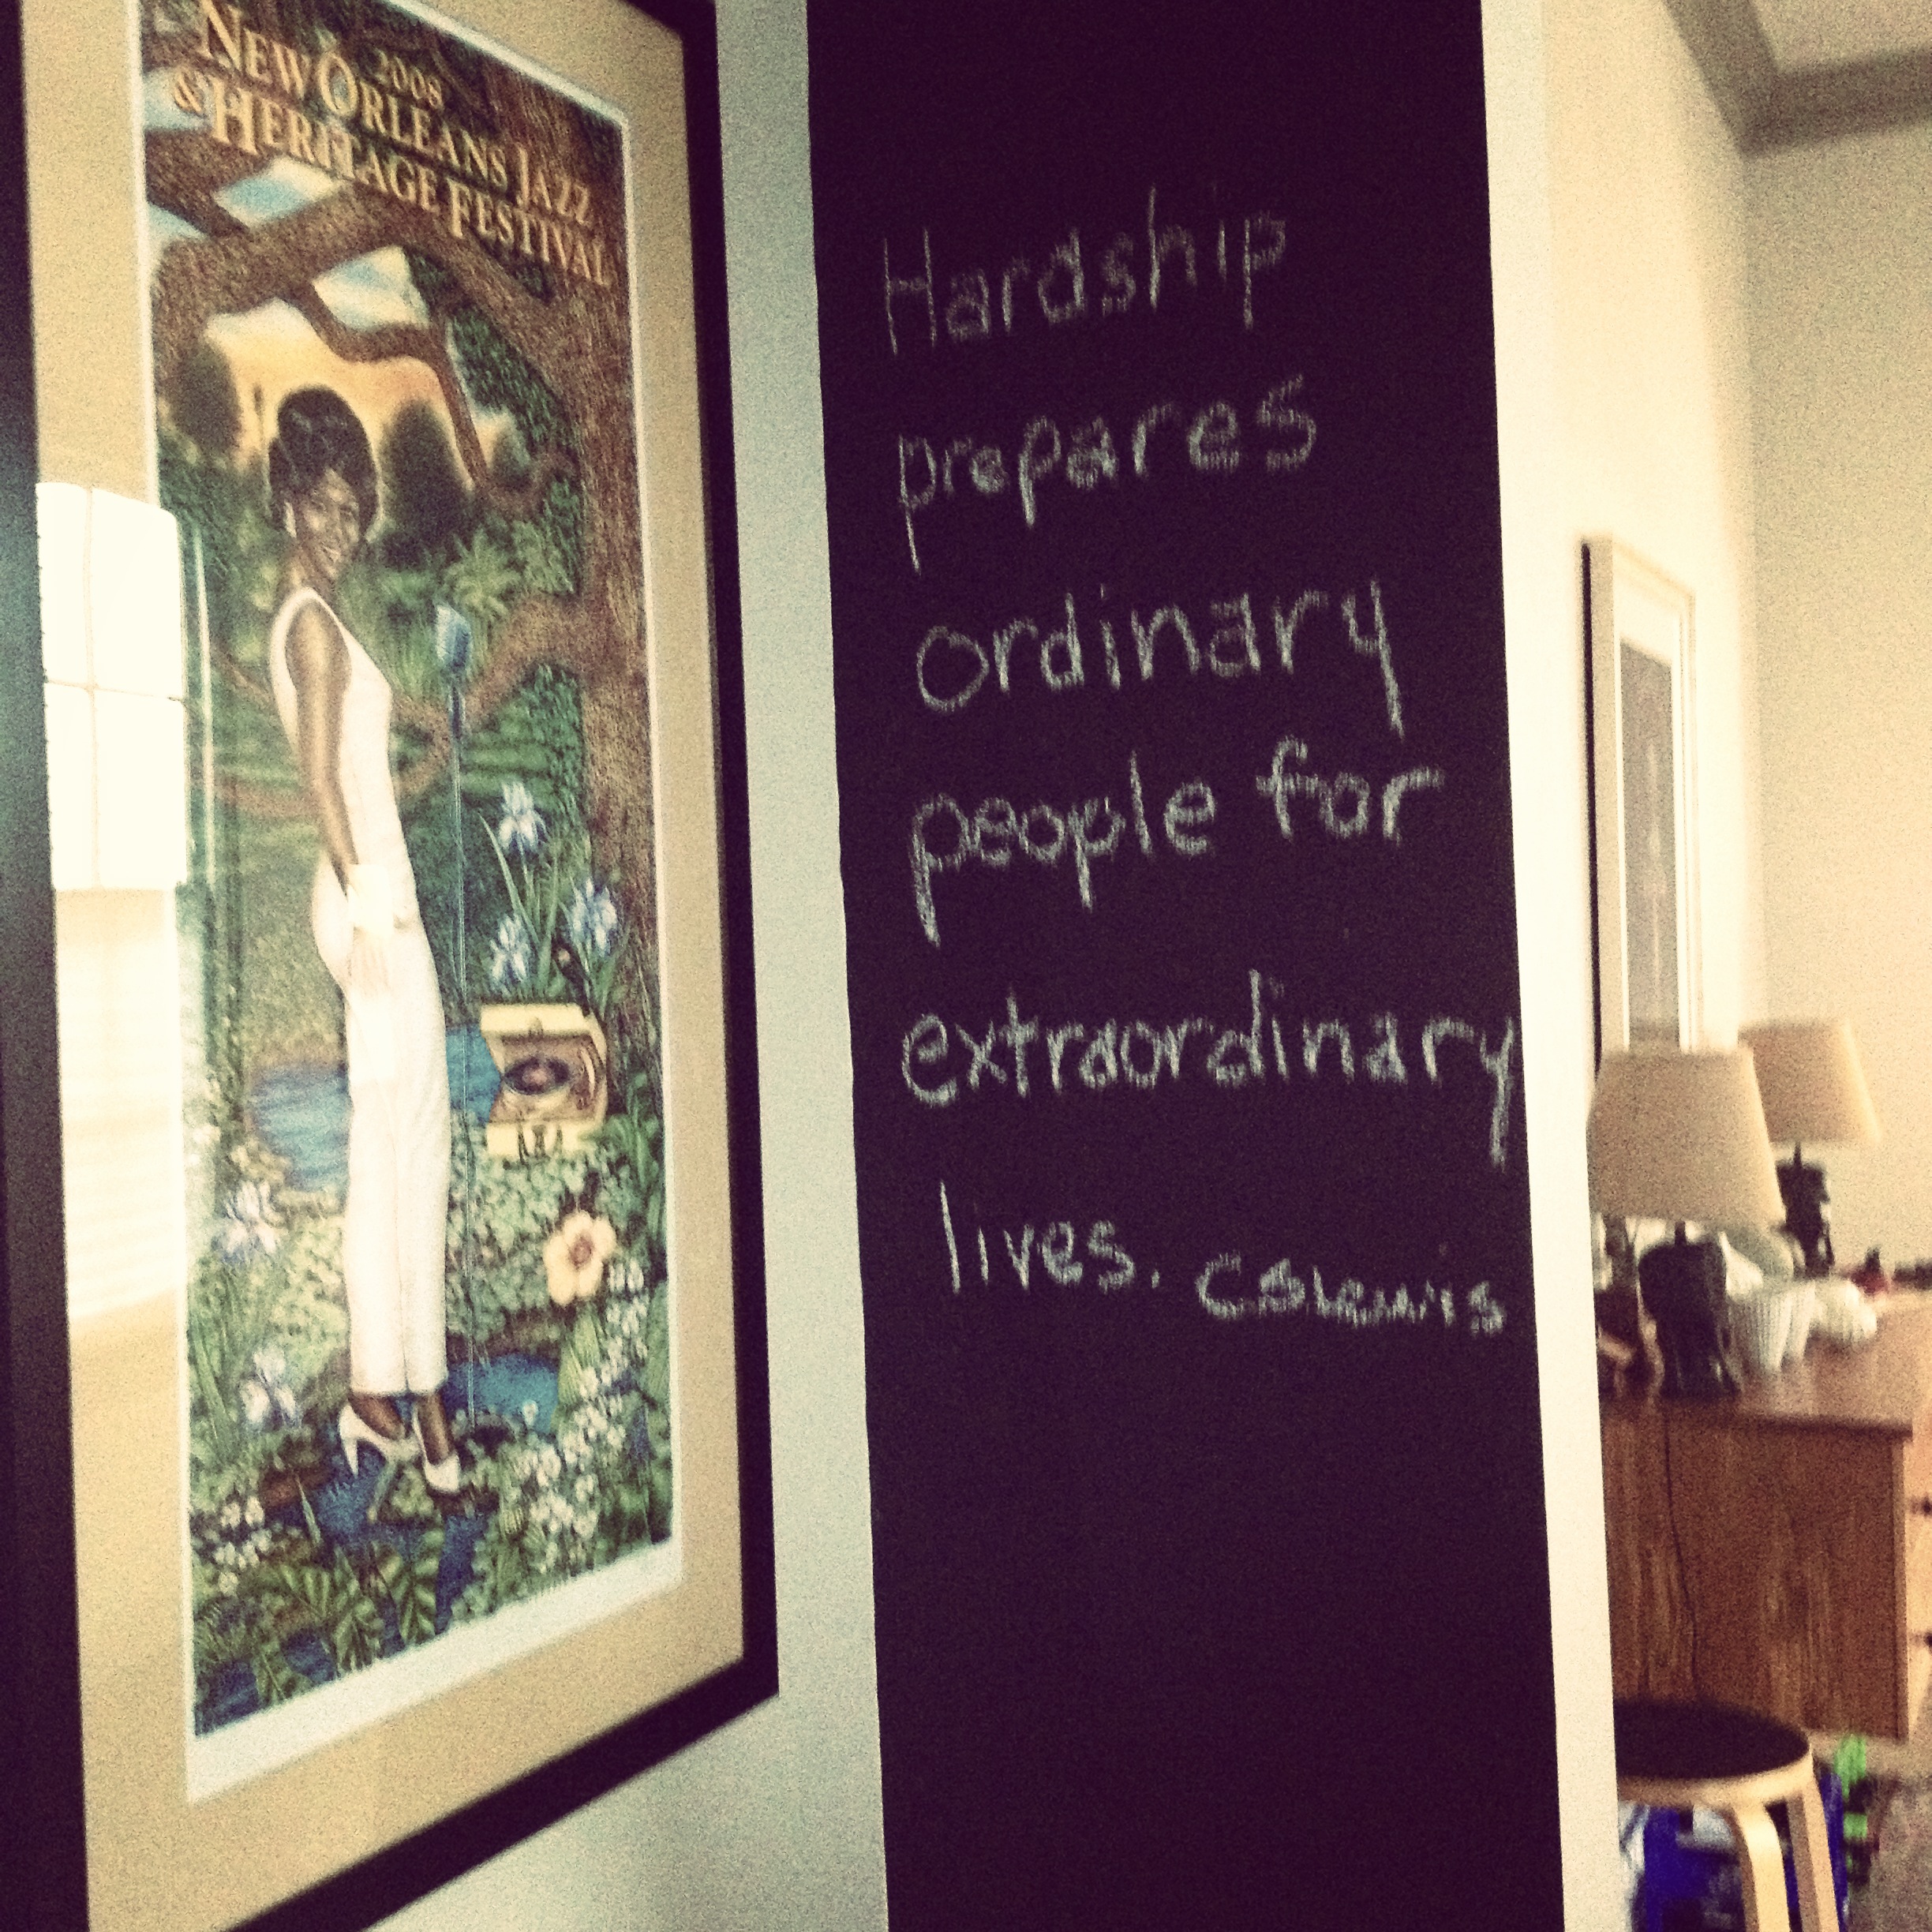 2008
NEW ORLEANS JAZZ
& HERITAGE FESTIVAL
Hardship
prepares
ordinary
people for
extraordinary
lives. CSLewis